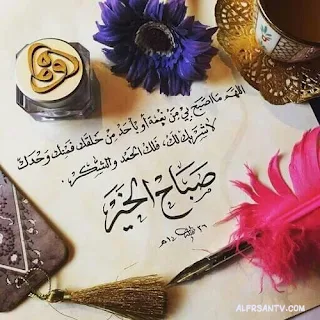 اللهم ما أصبح بي من نعمة أو بأحد من خلقك فمنك وحدك
لا شريك لك، فلك الحمد والشكر.
صباح الخير
ALFRSANTV.COM